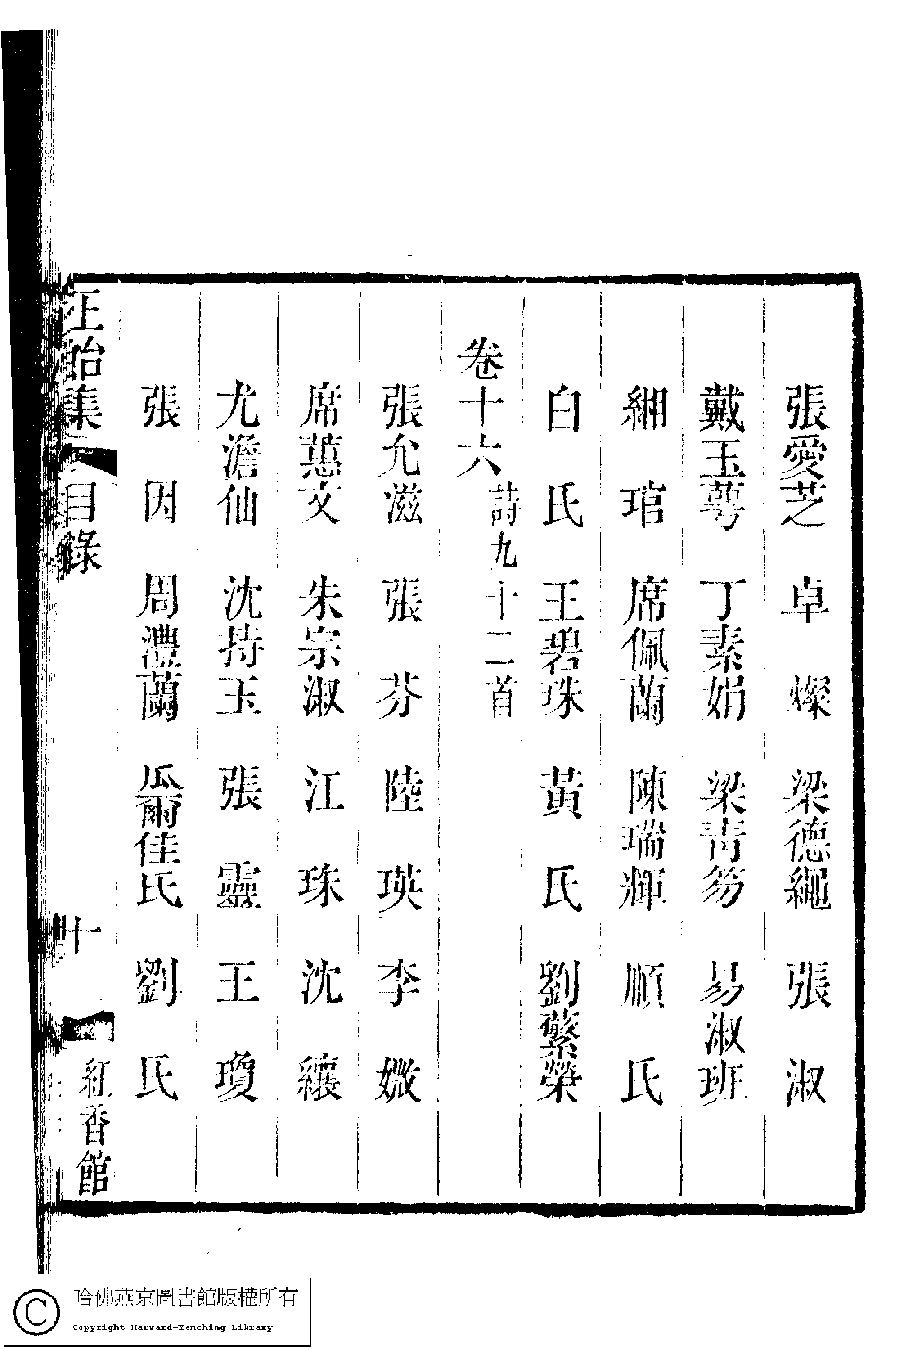 張愛芝　卓　燦　梁德繩　張　淑
戴玉蕚　丁素娟　梁青笏　易淑班
細　琯　席佩蘭　陳瑞輝　順　氏
白　氏　王碧珠　黃　氏　劉蘩榮
卷十六 詩九十二首
張允滋　張　芬　陸　瑛　李　媺
席蕙文　朱宗淑　江　珠　沈　纕
尤澹仙　沈持玉　張　靈　王　瓊
張　因　周澧蘭　瓜爾佳氏　劉　氏
正始集　目錄　十　紅香館
哈佛燕京圖書館版權所有
Copyright Harvard-Yenching Library